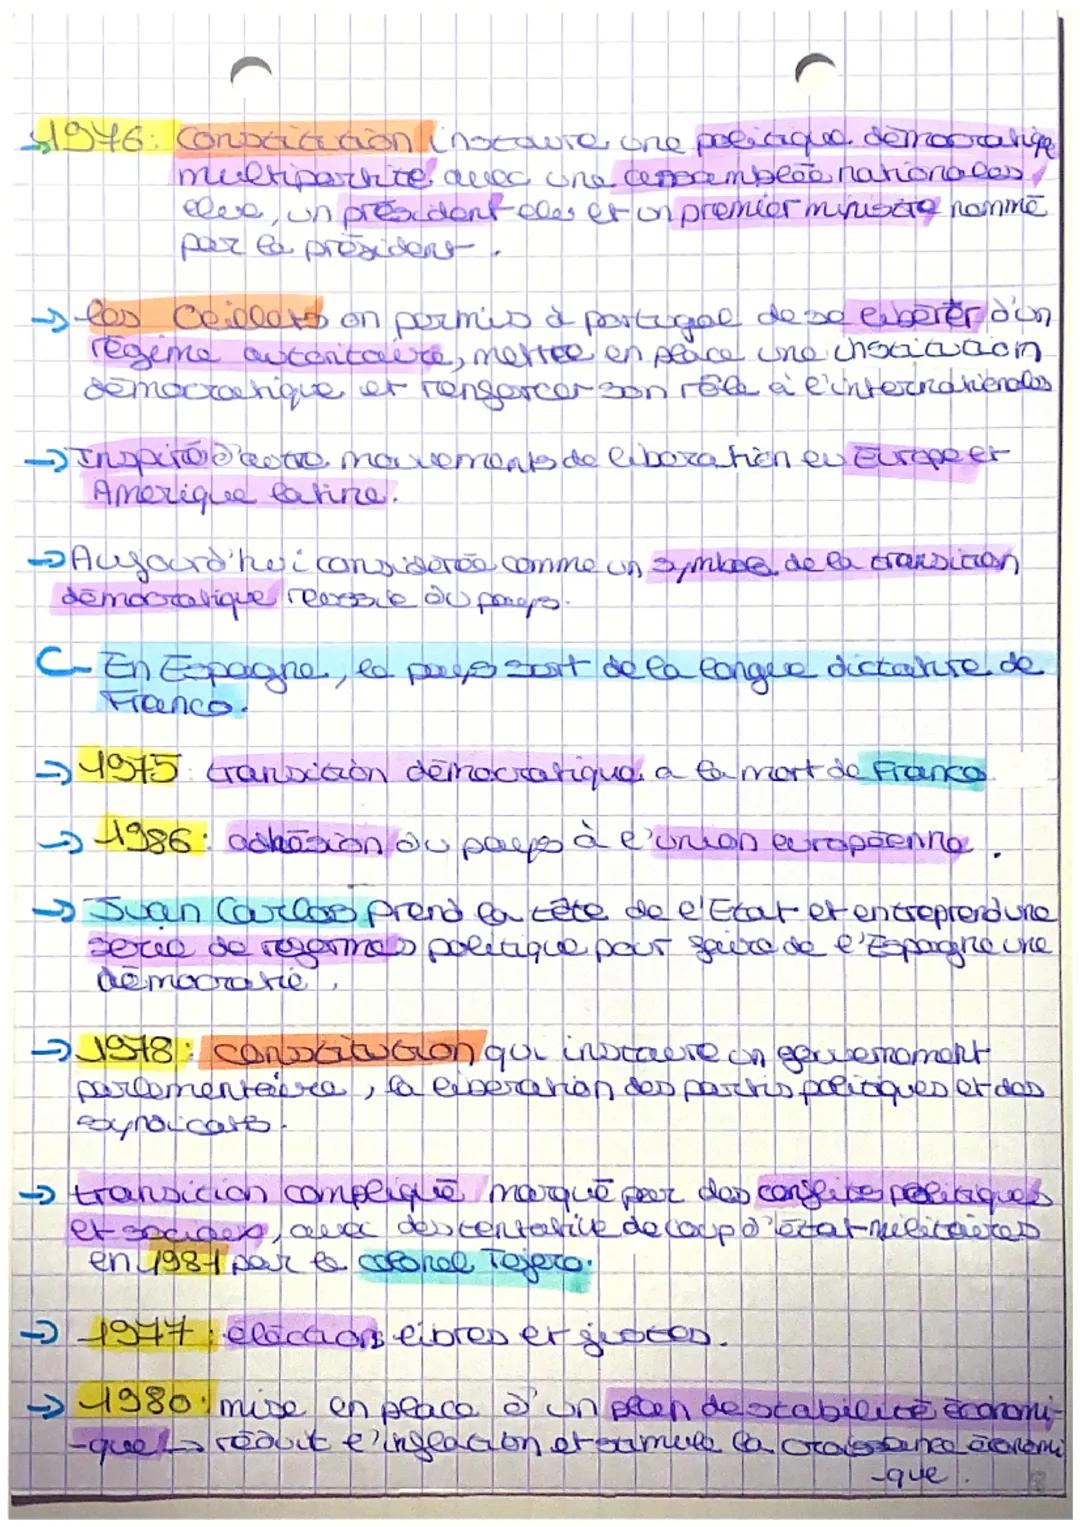 1976: Constitution instaure une politique démocratique
multipartite avec une assemblée nationales
élue, un président élus et un premier ministre nommé
par la président.
→ les Oeillets on permis à portugal de se libérer d'un
régime autoritaire, mettre en place une institution
démocratique et renforcer son rôle à l'internationales
→ Inspiré d'autre mouvements de libération en Europe et
Amérique latine.
→ Aujourd'hui considérée comme un symbole de la transition
démocratique réussie du pays.
C- En Espagne, le pays sort de la longue dictature de
Franco.
→ 1975: transition démocratique a la mort de Franco
→ 1986: adhésion du pays à l'union européenne.
→ Juan Carlos prend la tête de l'Etat et entreprend une
série de réformes politique pour faire de l'Espagne une
démocratie.
→ 1978: constitution qui instaure un gouvernement
parlementaire, la libération des partis politiques et des
syndicats.
→ transition compliqué marqué par des conflits politiques
et sociaux, avec des tentative de coup d'état militaires
en 1981 par le colonel Tejero.
→ 1977: élections libres et justes.
→ 1980: mise en place d'un plan de stabilité économi-
-que → réduit l'inflation et stimule la croissance économi
-que.